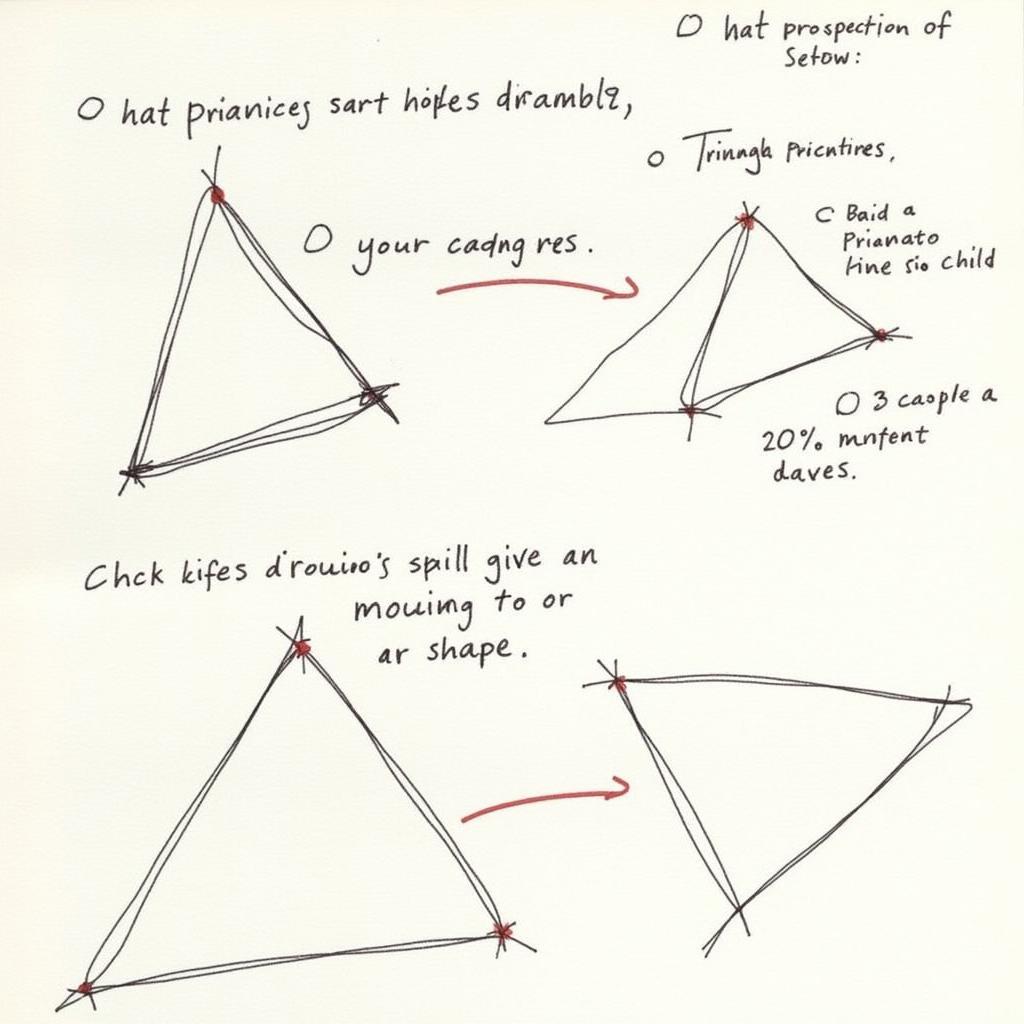 O hat prospection of
Setow:
O hat prianices sart hoples dirambla,
o Trinngh Pricntires,
O your cadng res.
C Baid a
Prianato
line sio child
O 3 caople a
20% mnfent
daves.
Chck kifes d'rouino's spill give an
mouimg to or
ar shape.